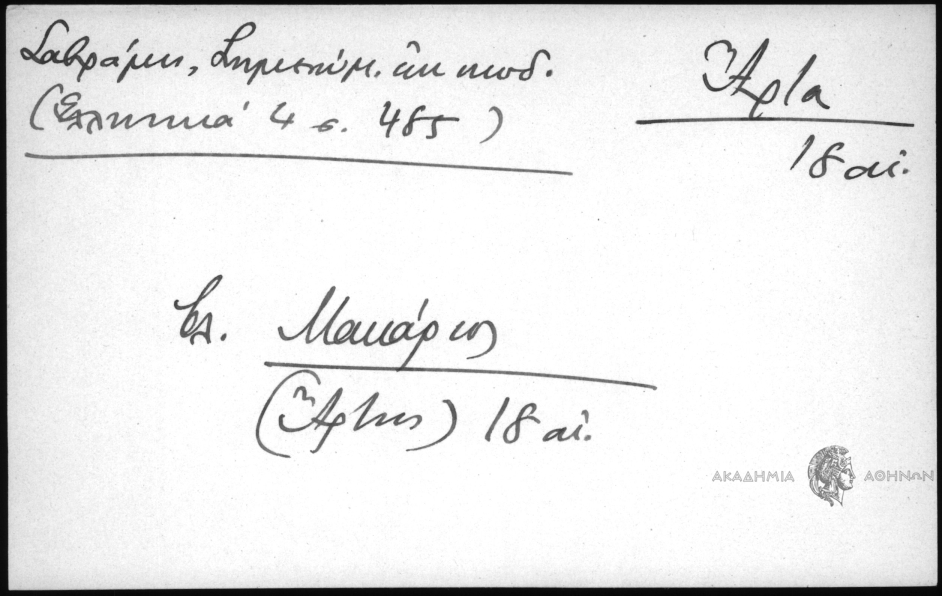 Σαβράμη, Σημειώμ. ἐκ κωδ.
(Ἑλληνικά 4 σ. 485)
Ἄρτα
18 αἰ.
βλ. Μακάριος
(Ἄρτης) 18 αἰ.
ΑΚΑΔΗΜΙΑ ΑΘΗΝΩΝ